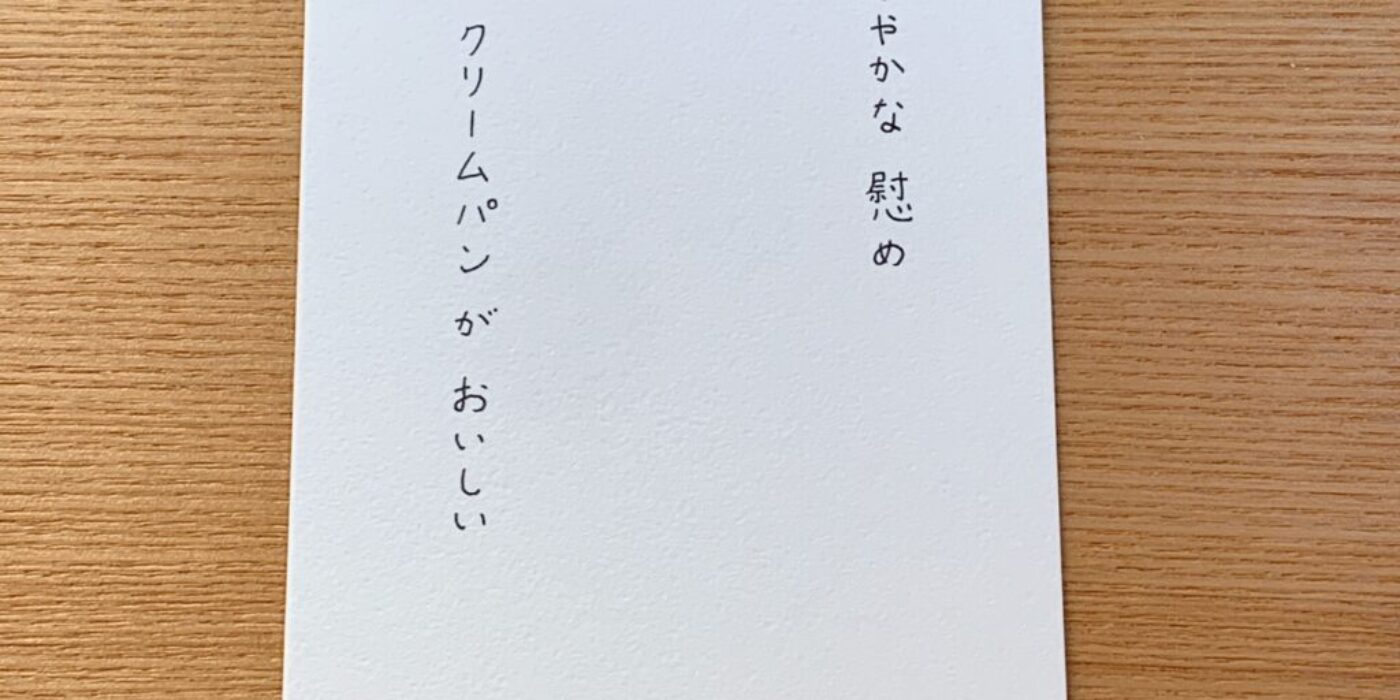 やかな 慰め
クリームパン が おいしい